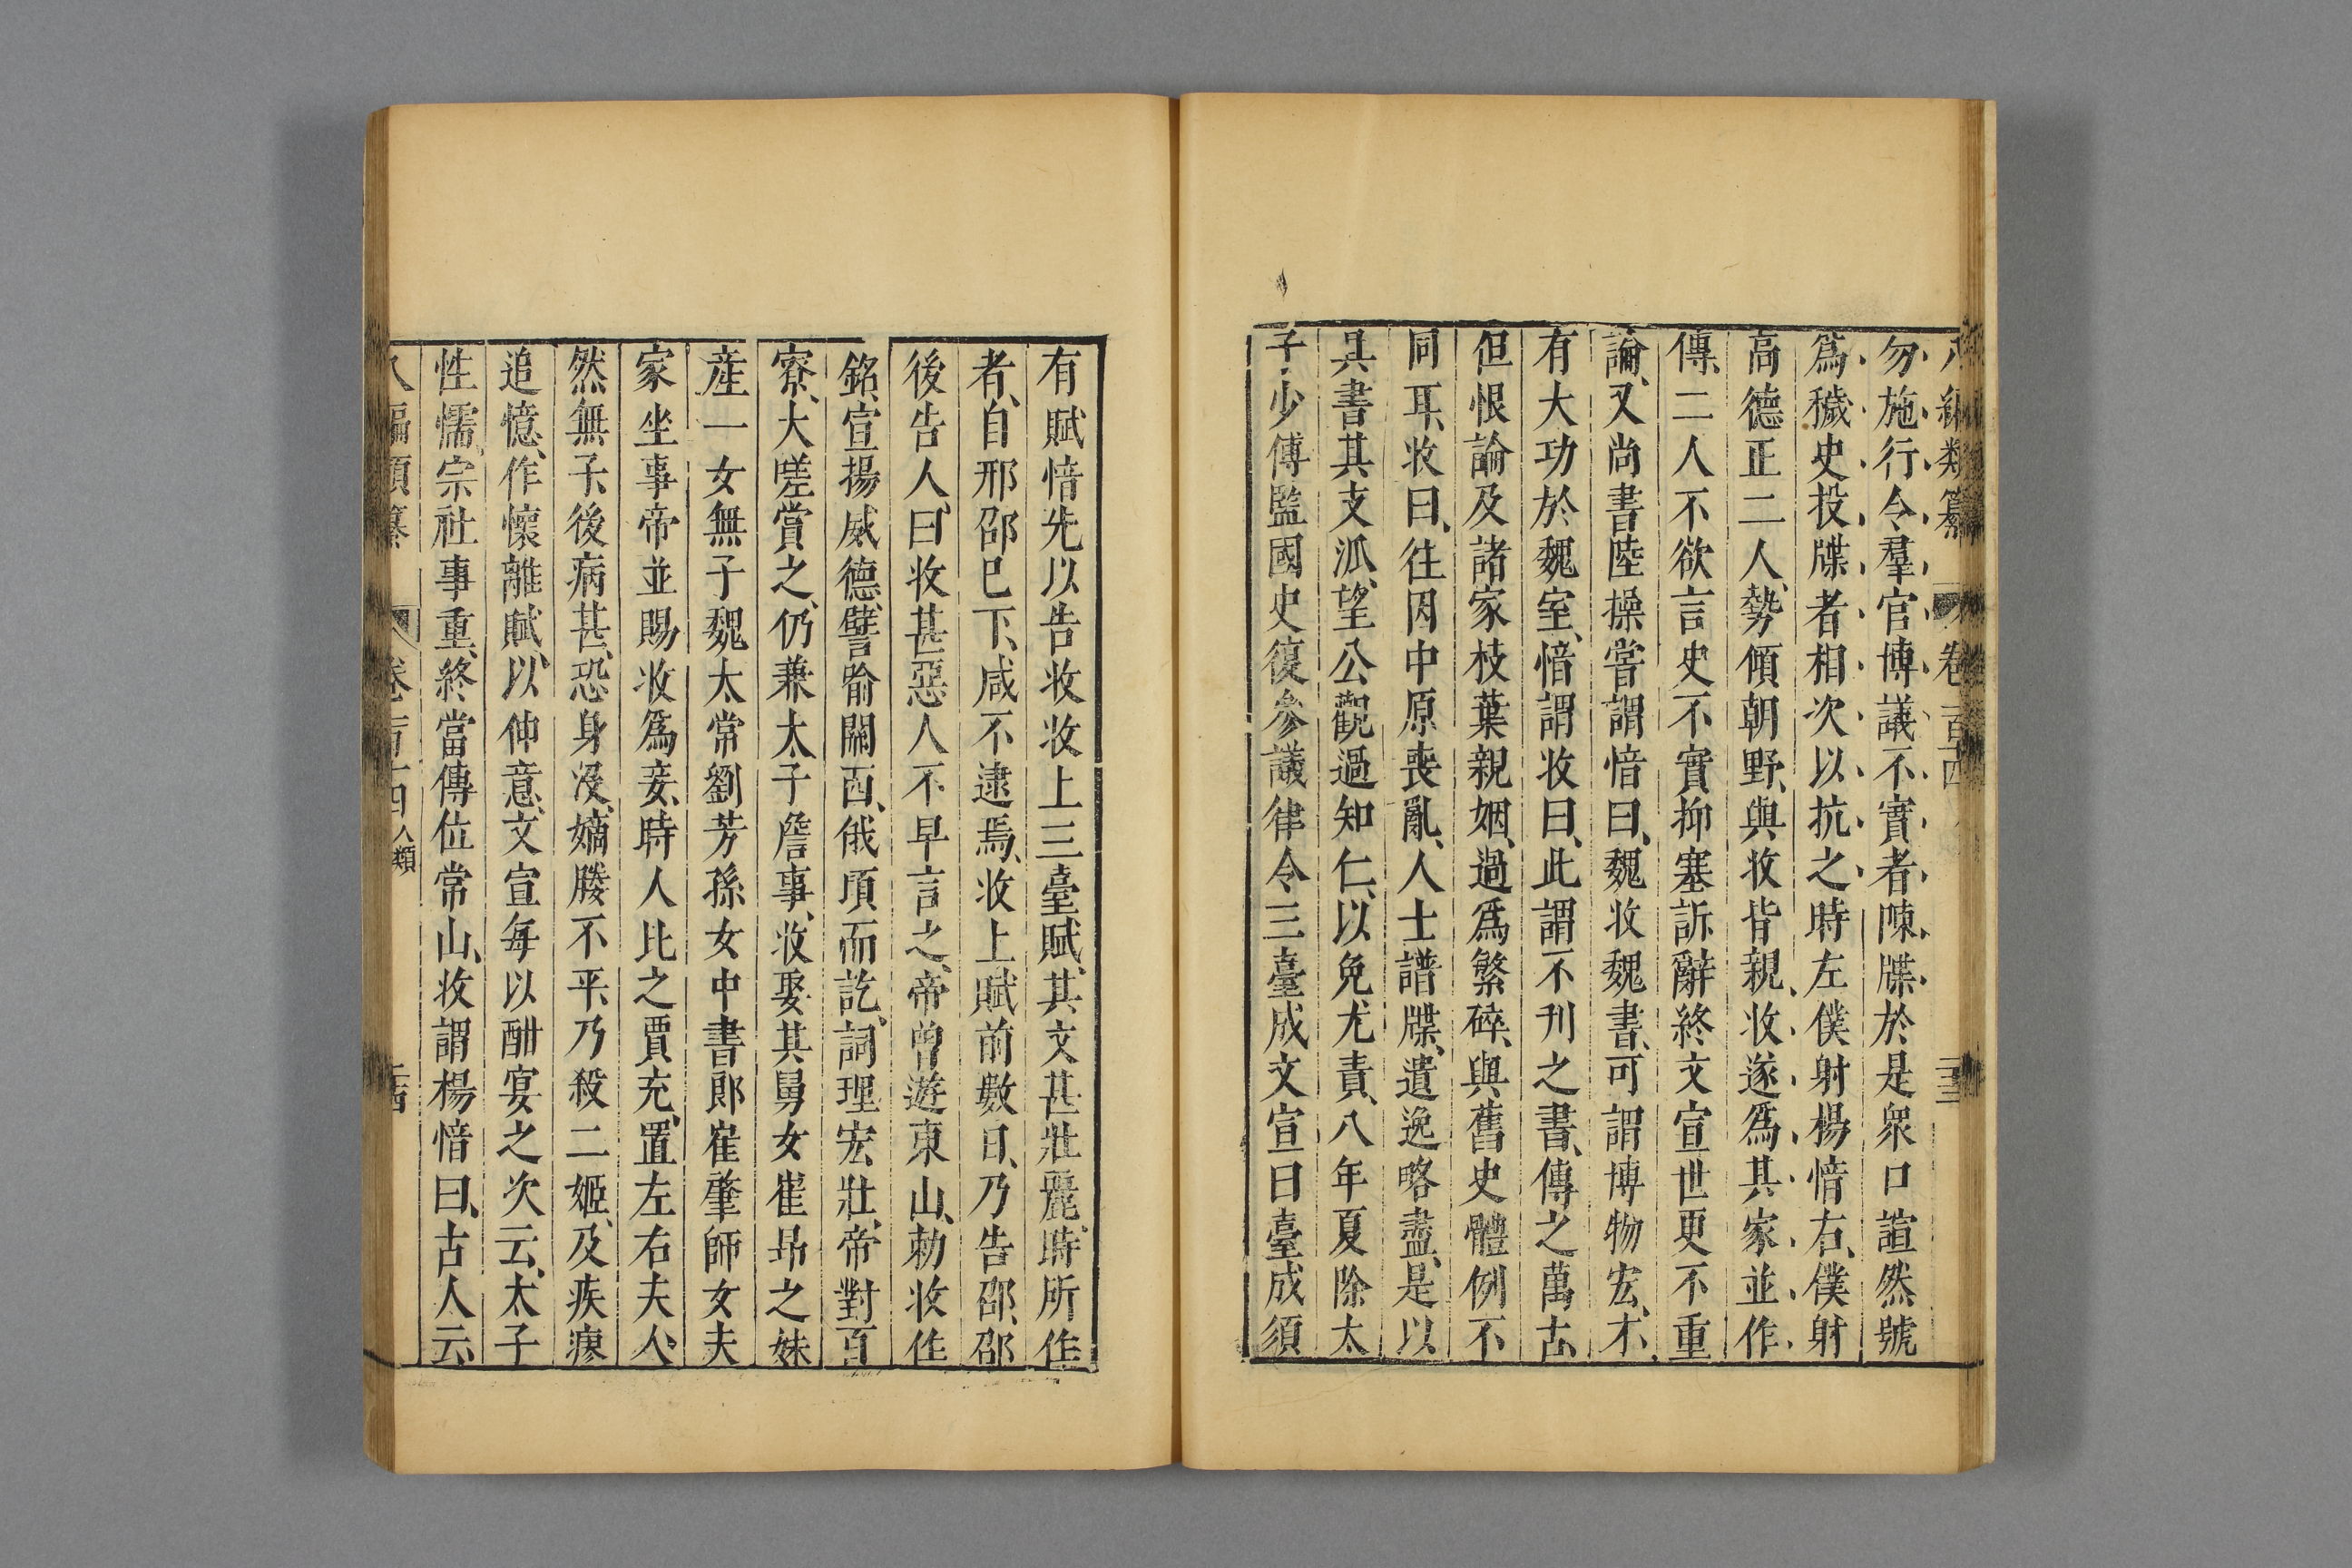 八編類纂 卷一百十四
勿施行令羣官博議不實者陳牒於是衆口諠然號
爲穢史投牒者相次以抗之時左僕射楊愔右僕射
高德正二人勢傾朝野與收皆親收遂爲其家並作
傳二人不欲言史不實抑塞訴辭終文宣世更不重
論又尚書陸操嘗謂愔曰魏收魏書可謂博物宏才
有大功於魏室愔謂收曰此謂不刊之書傳之萬古
但恨論及諸家枝葉親姻過爲繁碎與舊史體例不
同耳收曰往因中原喪亂人士譜牒遺逸略盡是以
具書其支派望公觀過知仁以免尤責八年夏除太
子少傅監國史復參議律令三臺成文宣曰臺成須
有賦愔先以告收收上三臺賦其文甚壯麗時所作
者自邢邵已下咸不逮焉收上賦前數日乃告邵邵
後告人曰收甚惡人不早言之帝曾遊東山勅收作
銘宣揚威德譬喻關西俄頃而訖詞理宏壯帝對百
寮大嗟賞之仍兼太子詹事收娶其舅女崔昂之妹
產一女無子魏太常劉芳孫女中書郎崔肇師女夫
家坐事帝並賜收爲妾時人比之賈充置左右夫人
然無子後病甚恐身沒嫡媵不平乃殺二姬及疾瘳
追憶作懷離賦以仲意文宣每以酣宴之次云太子
性懦宗社事重終當傳位常山收謂楊愔曰古人云
八編類纂 卷一百十四 人類